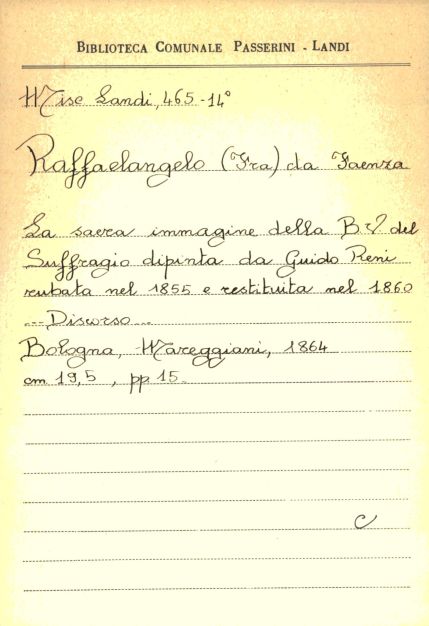 BIBLIOTECA COMUNALE PASSERINI - LANDI
Misc Landi, 465-14°
Raffaelangelo (Fra) da Faenza
La sacra immagine della B. V. del
Suffragio dipinta da Guido Reni
rubata nel 1855 e restituita nel 1860
... Discorso...
Bologna, Mareggiani, 1864
cm 19,5, pp 15.
C